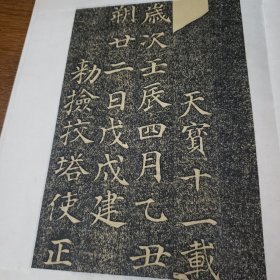 天寶十一載
歲次壬辰四月乙丑
朔廿二日戊戌建
勑撿挍塔使正